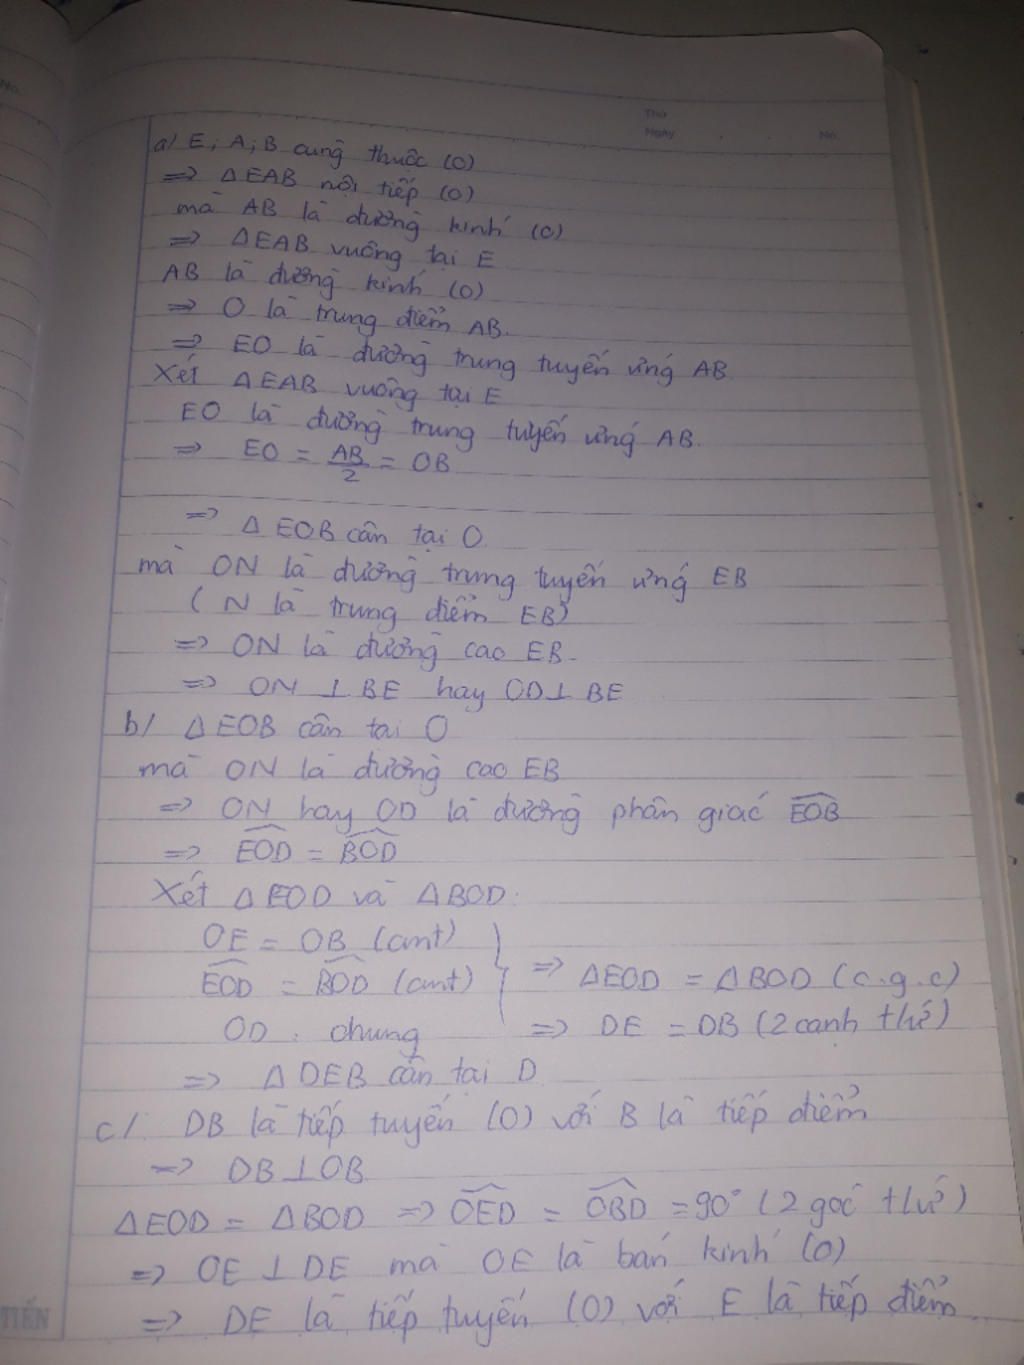 Thứ
Ngày
No.
No.
a/ E; A; B cùng thuộc (O)
=> ΔEAB nội tiếp (O)
mà AB là đường kính (O)
=> ΔEAB vuông tại E
AB là đường kính (O)
=> O là trung điểm AB.
=> EO là đường trung tuyến ứng AB.
Xét ΔEAB vuông tại E
EO là đường trung tuyến ứng AB.
=> EO = AB/2 = OB
=> ΔEOB cân tại O.
mà ON là đường trung tuyến ứng EB
(N là trung điểm EB)
=> ON là đường cao EB.
=> ON ⊥ BE hay OD ⊥ BE
b/ ΔEOB cân tại O
mà ON là đường cao EB
=> ON hay OD là đường phân giác \widehat{EOB}
=> \widehat{EOD} = \widehat{BOD}
Xét ΔEOD và ΔBOD:
OE = OB (cmt)
\widehat{EOD} = \widehat{BOD} (cmt) } => ΔEOD = ΔBOD (c.g.c)
OD : chung => DE = DB (2 cạnh t/ứ)
=> ΔDEB cân tại D
c/. DB là tiếp tuyến (O) với B là tiếp điểm
=> DB ⊥ OB
ΔEOD = ΔBOD => \widehat{OED} = \widehat{OBD} = 90° (2 góc t/ứ)
=> OE ⊥ DE mà OE là bán kính (O)
=> DE là tiếp tuyến (O) với E là tiếp điểm
TIẾN